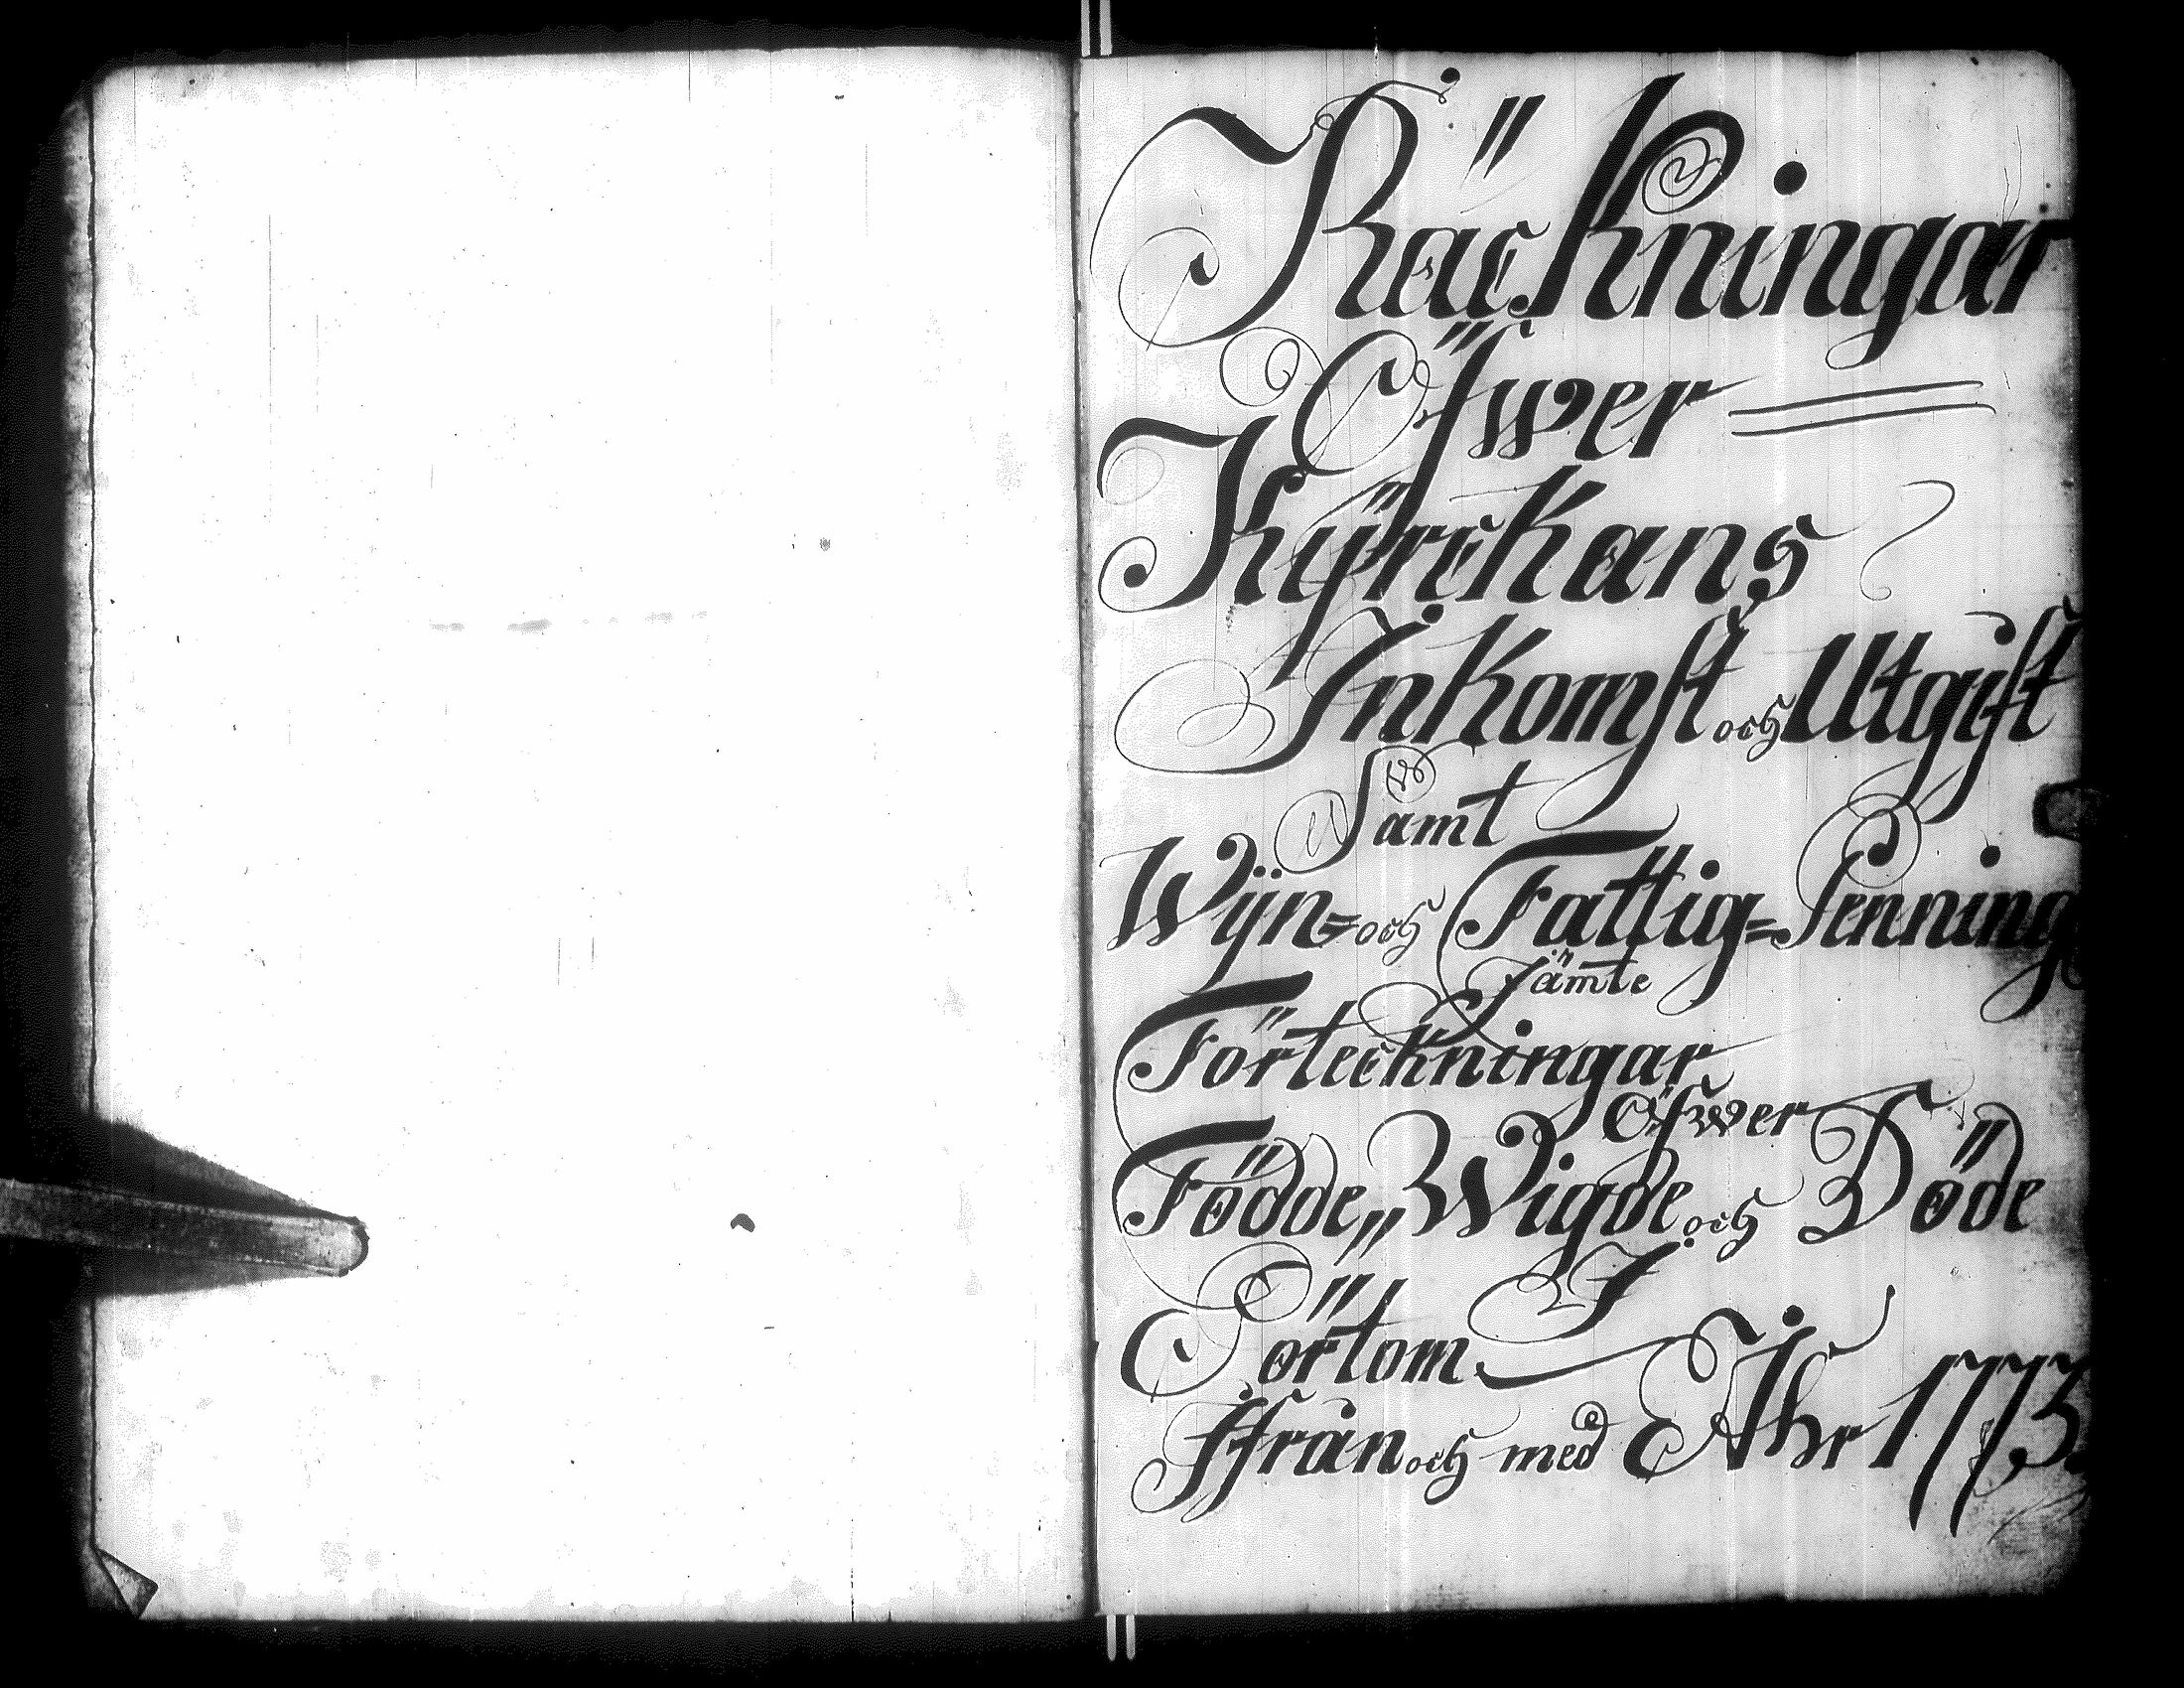 Räckningar
Öfwer
Kÿrckans
Inkomst och Utgift
Samt
Wijn= och Fattig=Penning
Jämte
Förteckningar
Öfwer
Födde,, Wigde och Döde
I
Pörtom
Ifrån och med Åhr 1773.